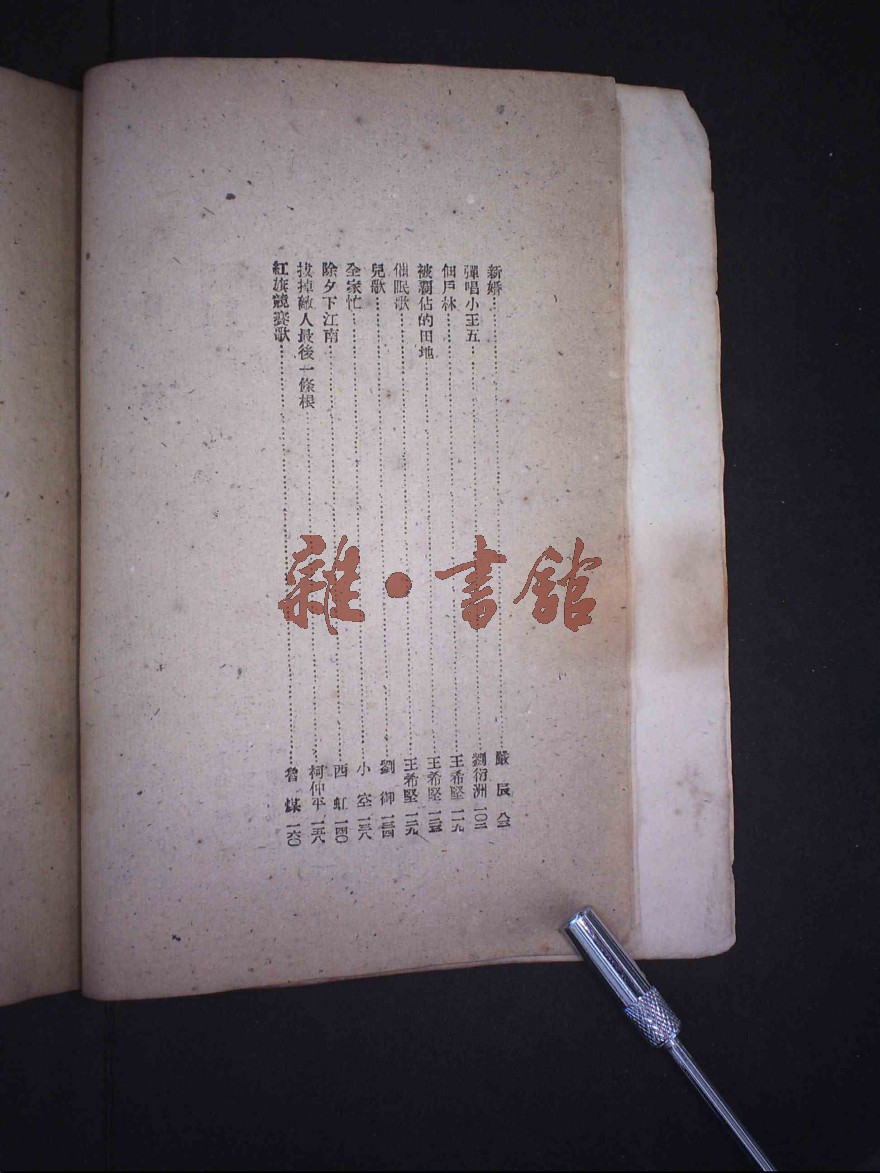 新婚……嚴辰 八三
彈唱小王五……劉衍洲 一〇三
佃戶林……王希堅 一一九
被霸佔的田地……王希堅 一二五
催眠歌……王希堅 一二九
兒歌……劉御 一三四
全家忙……小空 一三八
除夕下江南……西虹 一四〇
拔掉敵人最後一條根……柯仲平 一五八
紅旗競賽歌……魯煤 一六〇
雜·書館